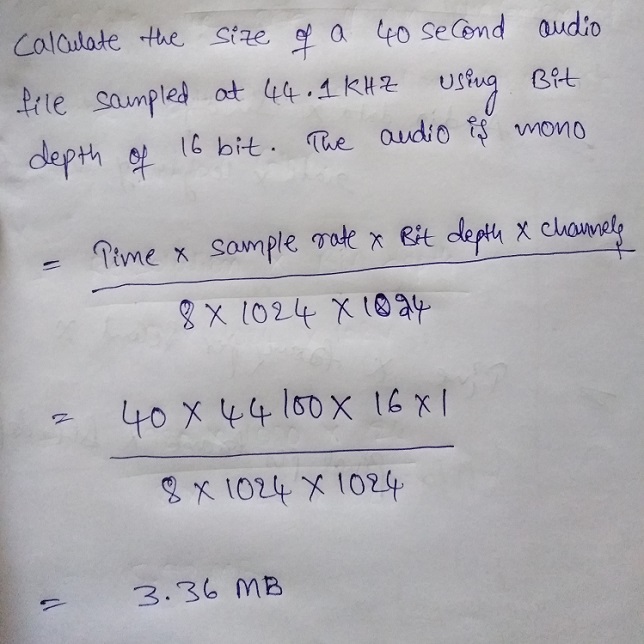 Calculate the size of a 40 second audio
file sampled at 44.1 KHZ using Bit
depth of 16 bit. The audio is mono
= Time x sample rate x Bit depth x channels
8 X 1024 X 1024
= 40 X 44100 X 16 X 1
8 X 1024 X 1024
= 3.36 MB